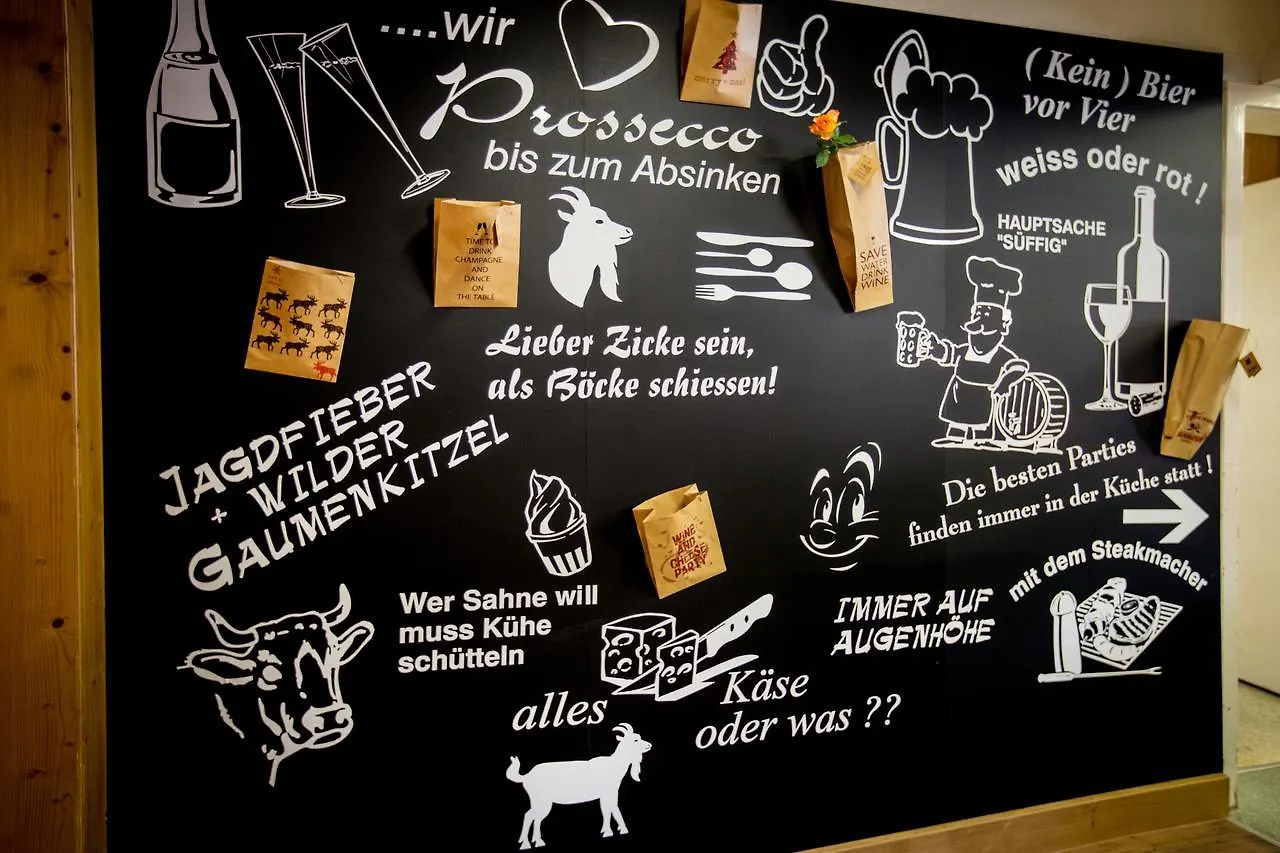 ....wir
Prossecco
bis zum Absinken
merry xmas!
( Kein ) Bier
vor Vier
weiss oder rot !
HAUPTSACHE
"SÜFFIG"
TIME TO
DRINK
CHAMPAGNE
AND
DANCE
ON
THE TABLE
SAVE
WATER
DRINK
WINE
Lieber Zicke sein,
als Böcke schiessen!
JAGDFIEBER
+ WILDER
GAUMENKITZEL
Die besten Parties
finden immer in der Küche statt !
WINE
AND
CHEESE
PARTY
mit dem Steakmacher
Wer Sahne will
muss Kühe
schütteln
IMMER AUF
AUGENHÖHE
alles Käse
oder was ??